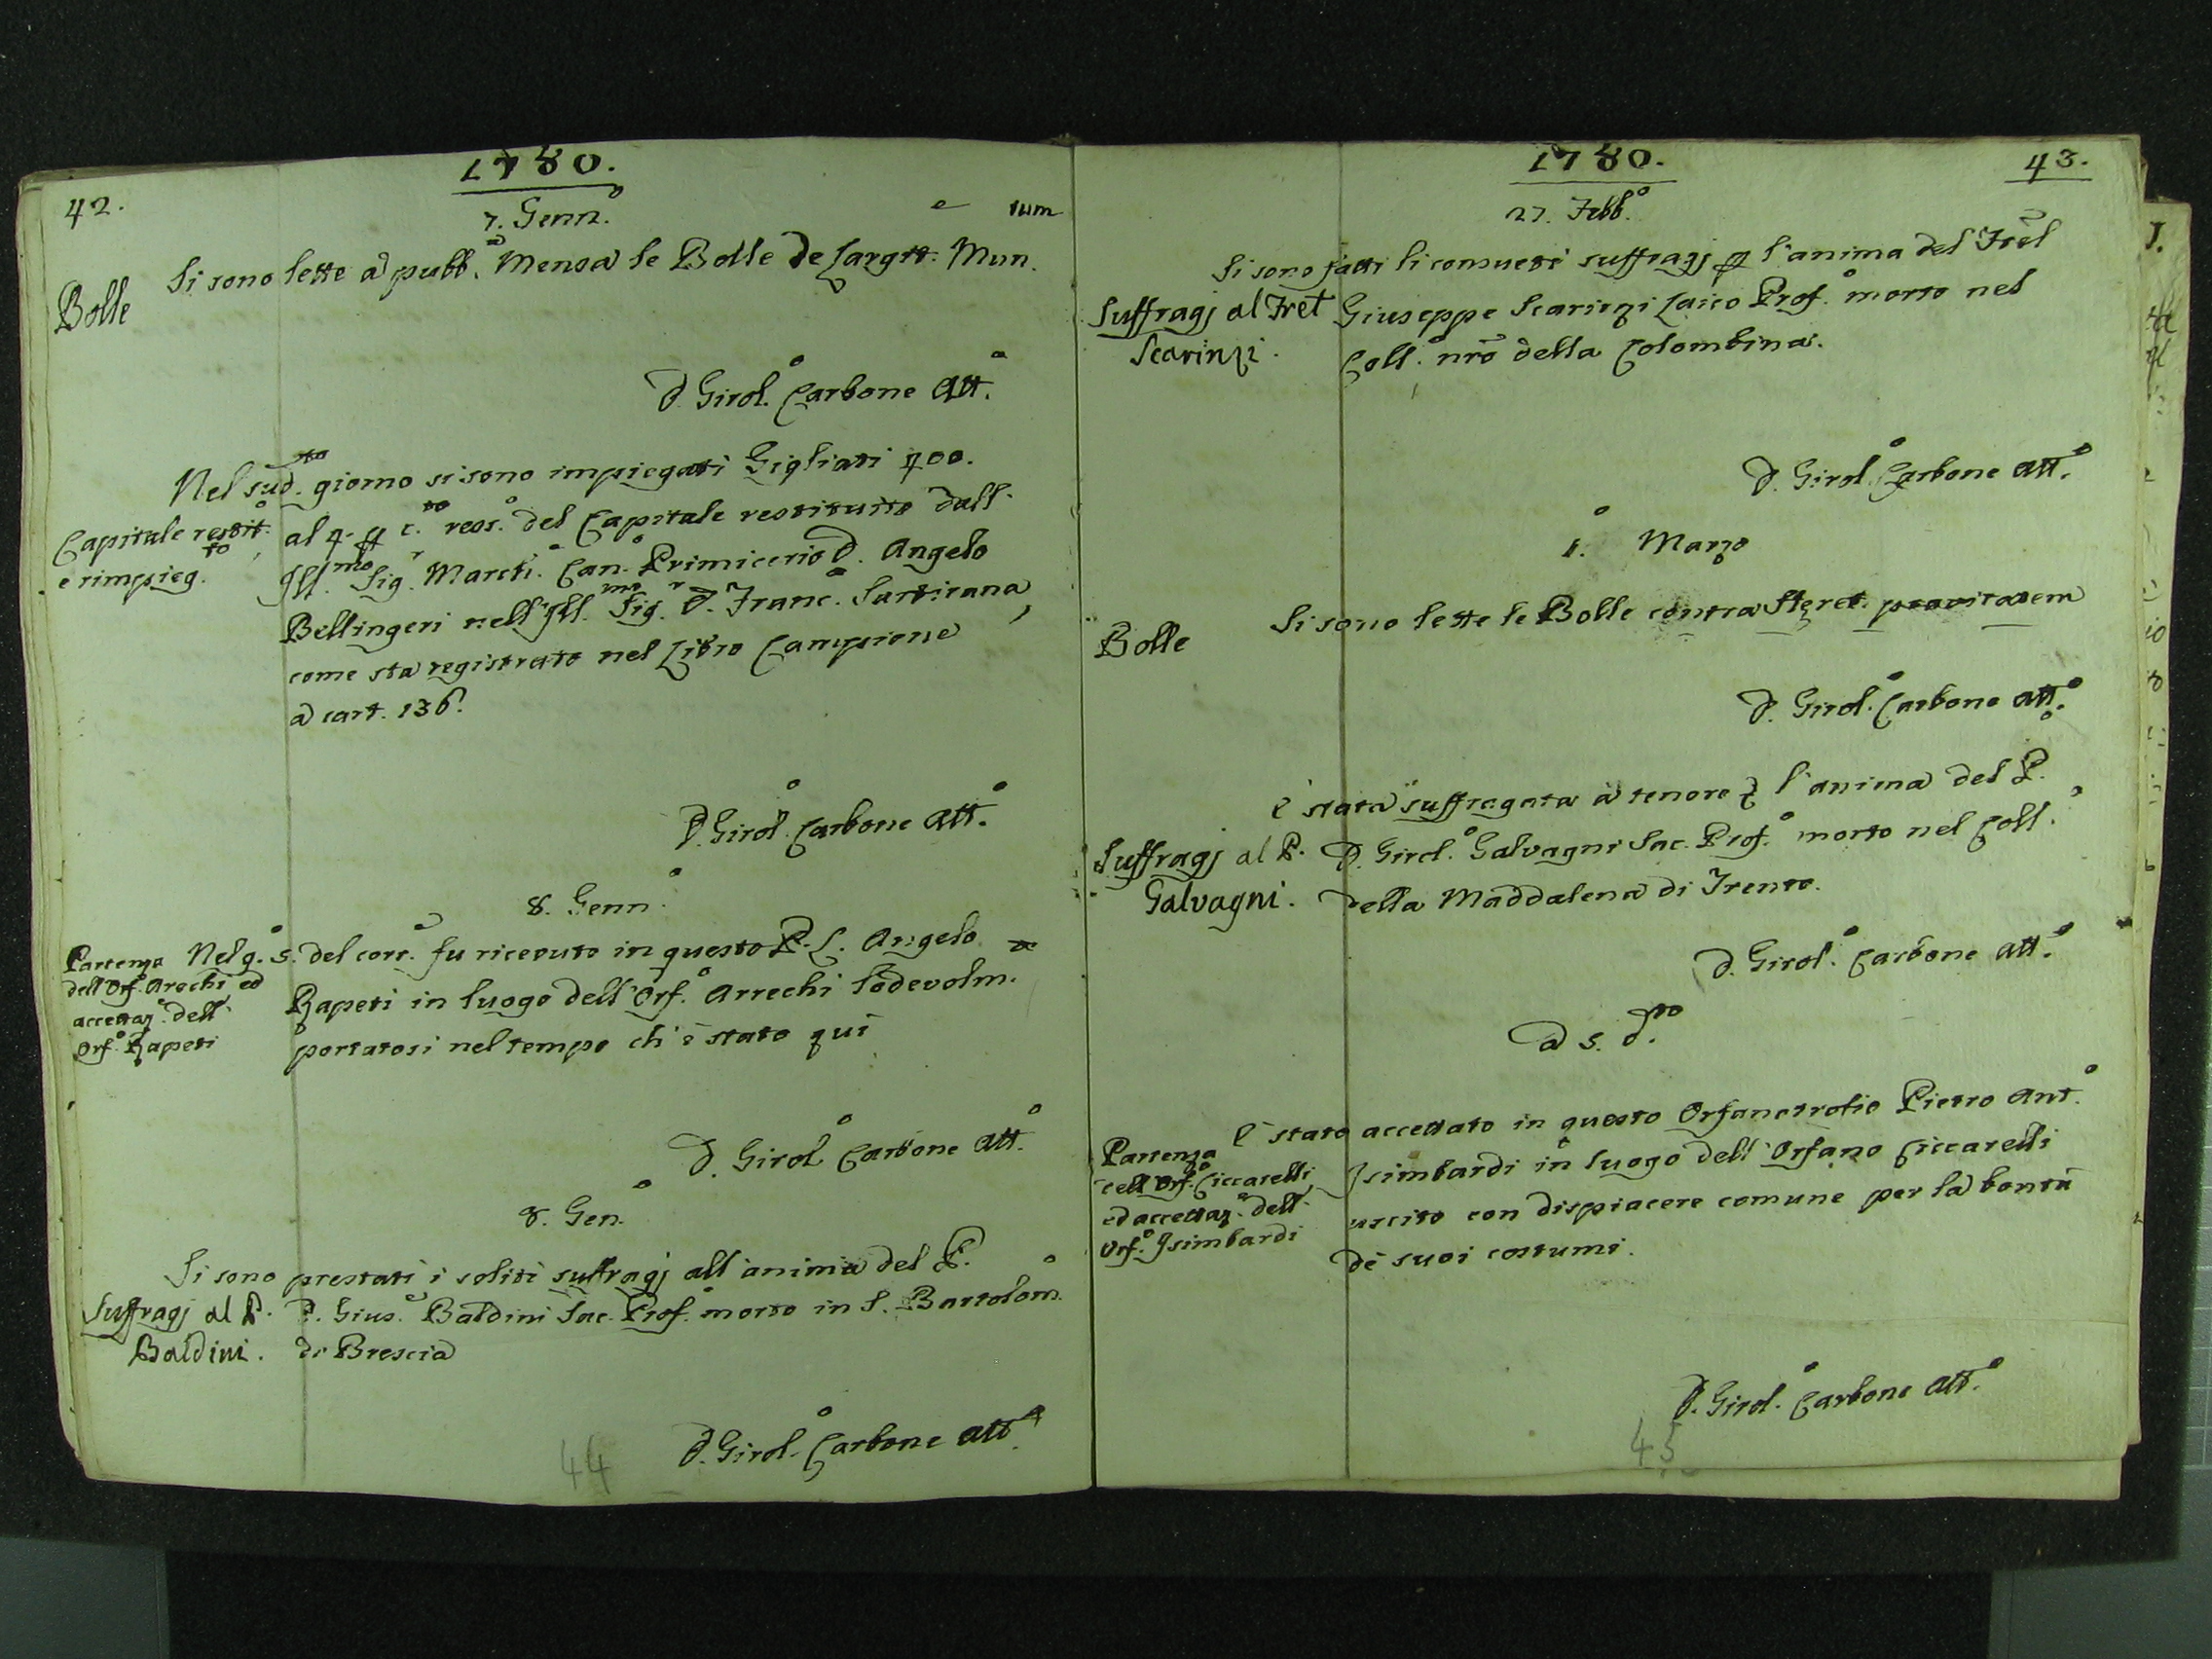 1780.
42.
7. Gennº.
Bolle
Si sono lette a pubb.ª Mensa le Bolle de Largit.e Mun.rum
D. Girol.º Carbone Att.º
Nel sud.to giorno si sono impiegati Gigliati 400.
Capitale restit.º
e rimpieg.to
al 4. p c.to ress.º del Capitale restituito dall'
Ill.mo Sig.r March.e Can.º Primicerio D. Angelo
Bellingeri nell' Ill.mo Sig.r D. Franc.º Sartirana,
come sta registrato nel Libro Campione
a cart. 136.
D. Girol.º Carbone Att.º
8. Genn.º
Partenza
dell' Orf.º Arechi ed
accettaz.e dell'
Orf.º Rapeti
Nel g.º 5. del corr.e fu ricevuto in questo P. L. Angelo
Rapeti in luogo dell' Orf.º Arrechi lodevolm.e
portatosi nel tempo ch' è stato quì
D. Girol.º Carbone Att.º
8. Gen.º
Si sono prestati i soliti suffragj all' anima del P.
Suffragj al P.
Baldini.
D. Gius.e Baldini Sac. Prof.º morto in S. Bartolom.º
di Brescia
D. Girol.º Carbone Att.º
44
1780.
43.
27. Febb.º
Si sono fatti li consueti suffragj p l'anima del Frèl
Suffragj al Frel
Scarinzi.
Giuseppe Scarinzi Laico Prof.º morto nel
Coll.º nrõ della Colombina.
D. Girol.º Carbone Att.º
1.º Marzo
Bolle
Si sono lette le Bolle contra Heret. pravitatem
D. Girol.º Carbone Att.º
È stata suffragata a tenore p l'anima del P.
Suffragj al P.
Galvagni.
D. Girol.º Galvagni Sac. Prof.º morto nel Coll.º
della Maddalena di Trento.
D. Girol.º Carbone Att.º
a 5. d.tto
Partenza
dell' Orf.º Ciccarelli,
ed accettaz.e dell'
Orf.º Isimbardi
È stato accettato in questo Orfanotrofio Pietro Ant.º
Isimbardi in luogo dell' Orfano Ciccarelli
uscito con dispiacere comune per la bontà
de' suoi costumi.
D. Girol.º Carbone Att.º
45